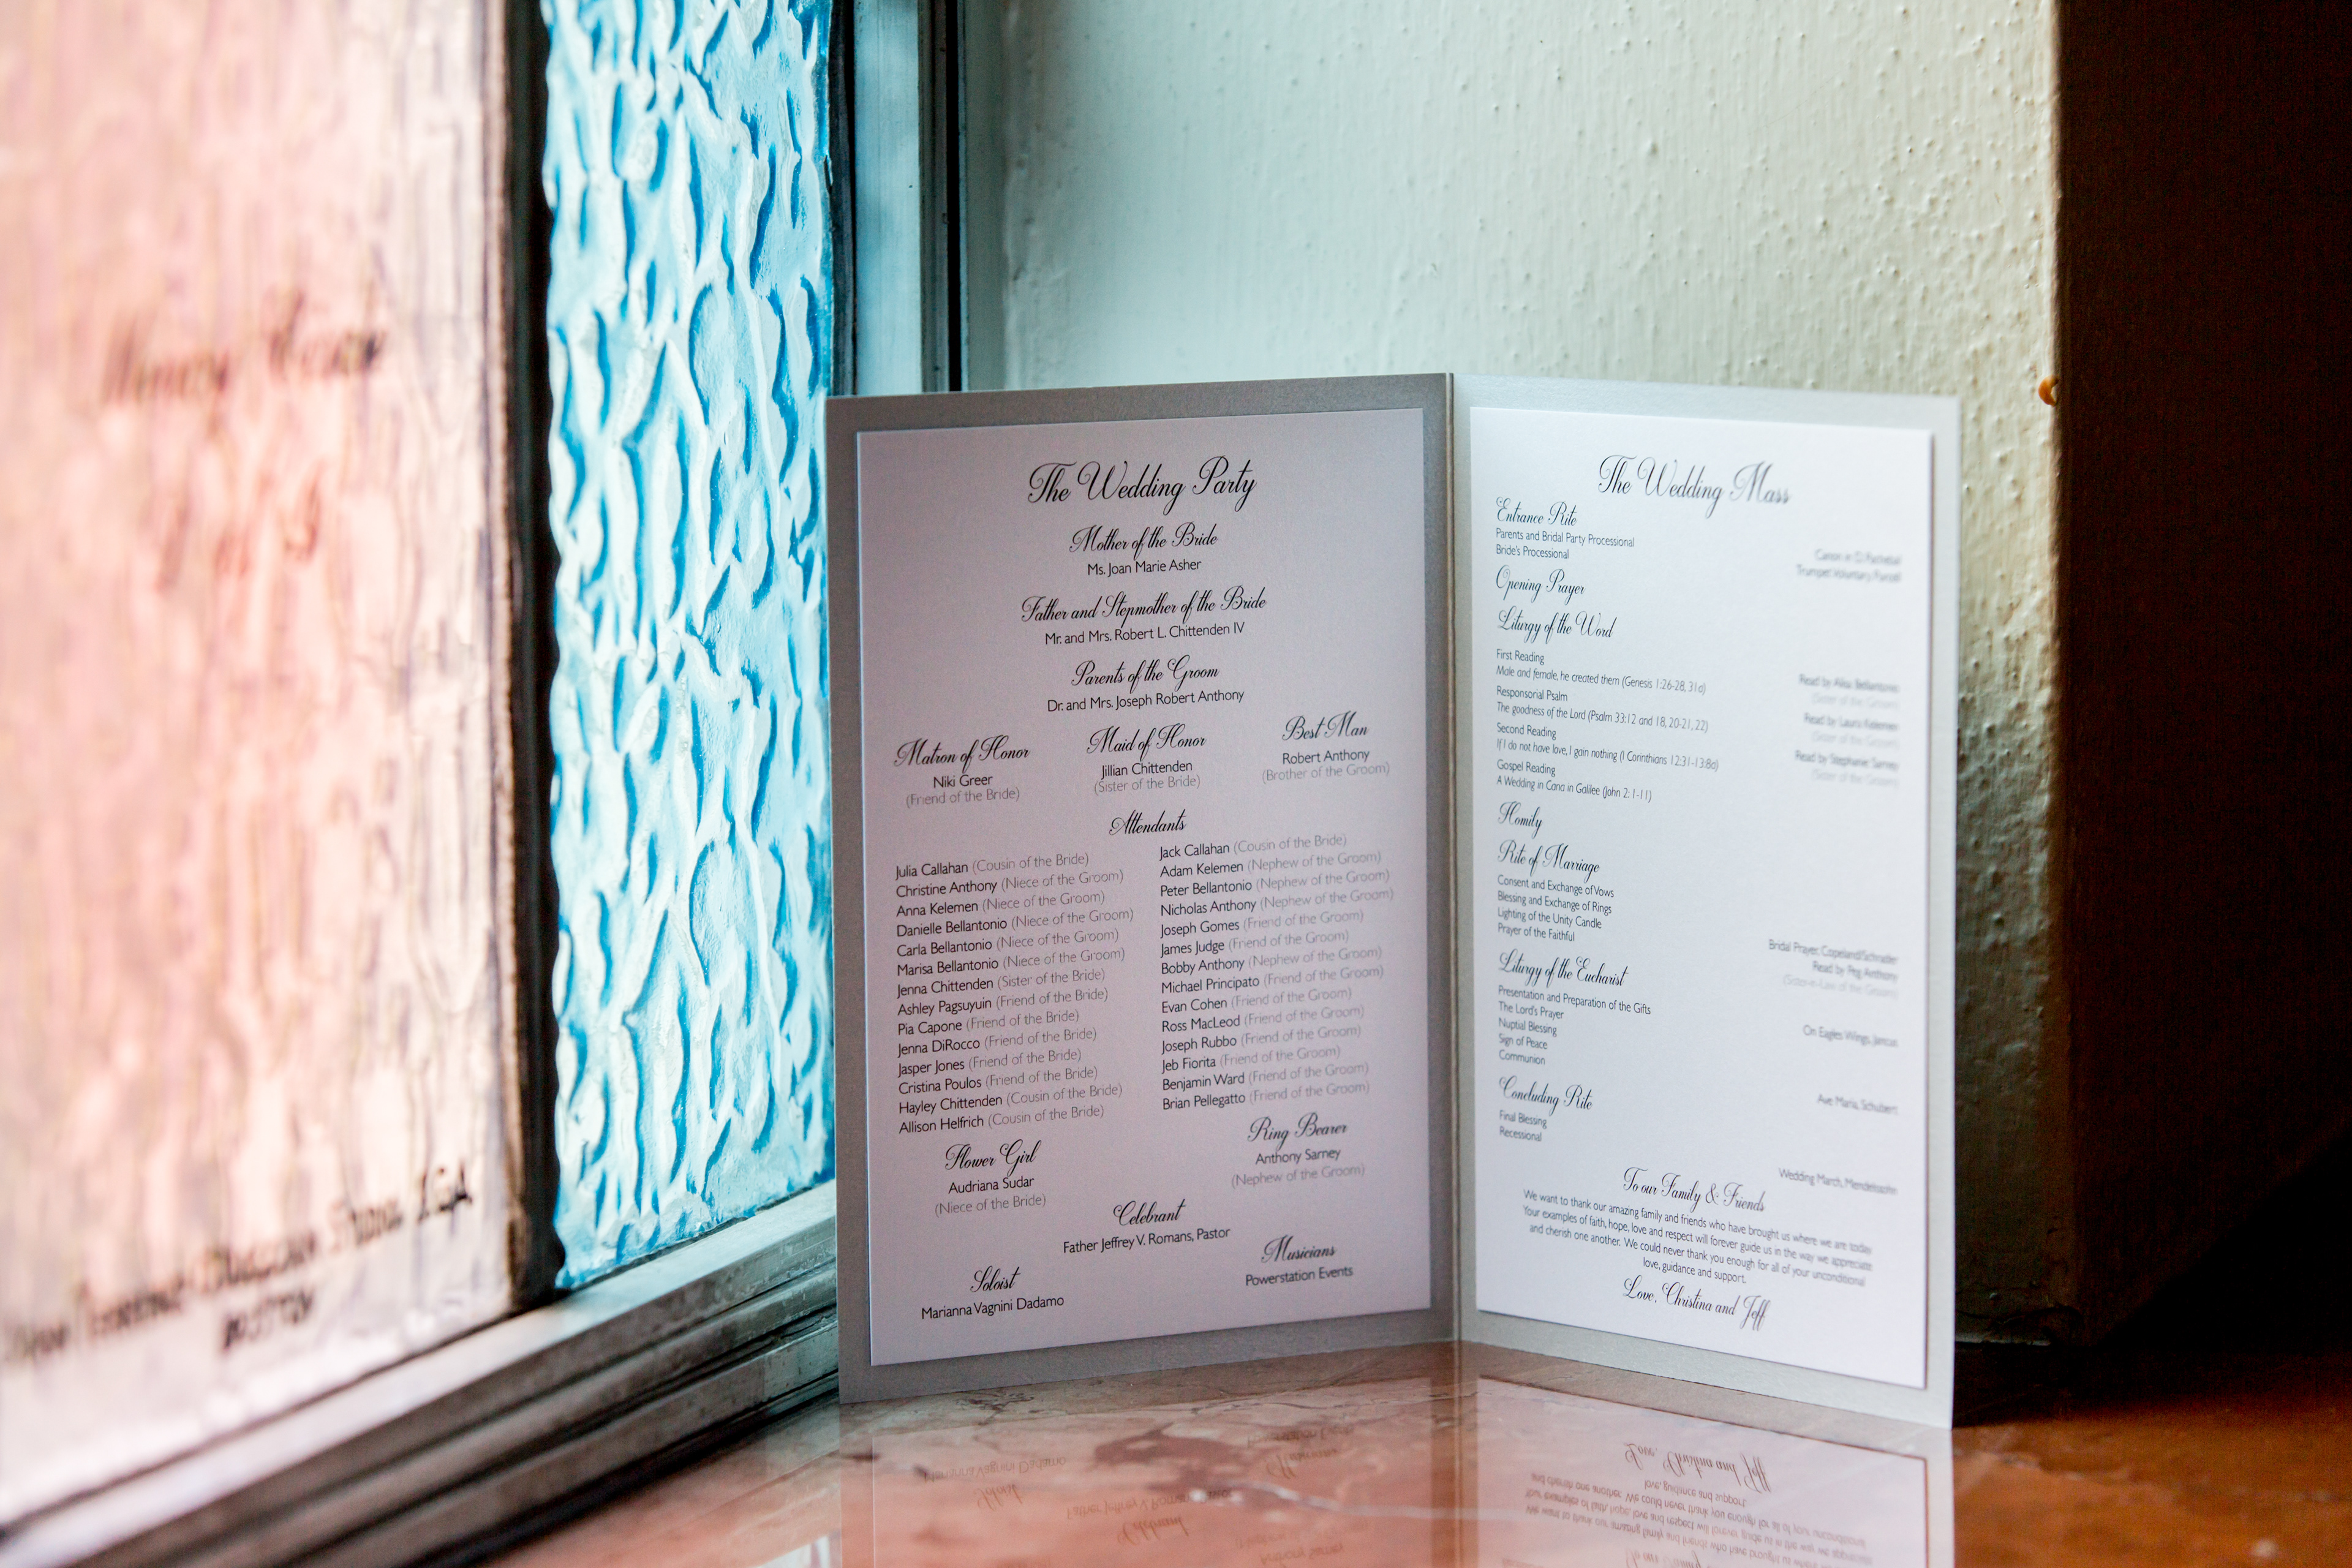 The Wedding Party
Mother of the Bride
Ms. Joan Marie Asher
Father and Stepmother of the Bride
Mr. and Mrs. Robert L. Chittenden IV
Parents of the Groom
Dr. and Mrs. Joseph Robert Anthony
Matron of Honor
Niki Greer
(Friend of the Bride)
Maid of Honor
Jillian Chittenden
(Sister of the Bride)
Best Man
Robert Anthony
(Brother of the Groom)
Attendants
Julia Callahan (Cousin of the Bride)
Christine Anthony (Niece of the Groom)
Anna Kelemen (Niece of the Groom)
Danielle Bellantonio (Niece of the Groom)
Carla Bellantonio (Niece of the Groom)
Marisa Bellantonio (Niece of the Groom)
Jenna Chittenden (Sister of the Bride)
Ashley Pagsuyuin (Friend of the Bride)
Pia Capone (Friend of the Bride)
Jenna DiRocco (Friend of the Bride)
Jasper Jones (Friend of the Bride)
Cristina Poulos (Friend of the Bride)
Hayley Chittenden (Cousin of the Bride)
Allison Helfrich (Cousin of the Bride)
Jack Callahan (Cousin of the Bride)
Adam Kelemen (Nephew of the Groom)
Peter Bellantonio (Nephew of the Groom)
Nicholas Anthony (Nephew of the Groom)
Joseph Gomes (Friend of the Groom)
James Judge (Friend of the Groom)
Bobby Anthony (Nephew of the Groom)
Michael Principato (Friend of the Groom)
Evan Cohen (Friend of the Groom)
Ross MacLeod (Friend of the Groom)
Joseph Rubbo (Friend of the Groom)
Jeb Fiorita (Friend of the Groom)
Benjamin Ward (Friend of the Groom)
Brian Pellegatto (Friend of the Groom)
Flower Girl
Audriana Sudar
(Niece of the Bride)
Ring Bearer
Anthony Sarney
(Nephew of the Groom)
Celebrant
Father Jeffrey V. Romans, Pastor
Soloist
Marianna Vagnini Dadamo
Musicians
Powerstation Events
The Wedding Mass
Entrance Rite
Parents and Bridal Party Processional
Canon in D, Pachelbel
Bride's Processional
Trumpet Voluntary, Purcell
Opening Prayer
Liturgy of the Word
First Reading
Male and female, he created them (Genesis 1:26-28, 31a)
Read by Alisa Bellantonio
(Sister of the Groom)
Responsorial Psalm
The goodness of the Lord (Psalm 33:12 and 18, 20-21, 22)
Read by Laura Kelemen
(Sister of the Groom)
Second Reading
If I do not have love, I gain nothing (I Corinthians 12:31-13:8a)
Read by Stephanie Sarney
(Sister of the Groom)
Gospel Reading
A Wedding in Cana in Galilee (John 2: 1-11)
Homily
Rite of Marriage
Consent and Exchange of Vows
Blessing and Exchange of Rings
Lighting of the Unity Candle
Bridal Prayer, Copeland/Schrader
Prayer of the Faithful
Read by Peg Anthony
(Sister-in-Law of the Groom)
Liturgy of the Eucharist
Presentation and Preparation of the Gifts
On Eagles Wings, Joncas
The Lord's Prayer
Nuptial Blessing
Sign of Peace
Communion
Ave Maria, Schubert
Concluding Rite
Final Blessing
Recessional
Wedding March, Mendelssohn
To our Family & Friends
We want to thank our amazing family and friends who have brought us where we are today
Your examples of faith, hope, love and respect will forever guide us in the way we appreciate
and cherish one another. We could never thank you enough for all of your unconditional
love, guidance and support.
Love, Christina and Jeff